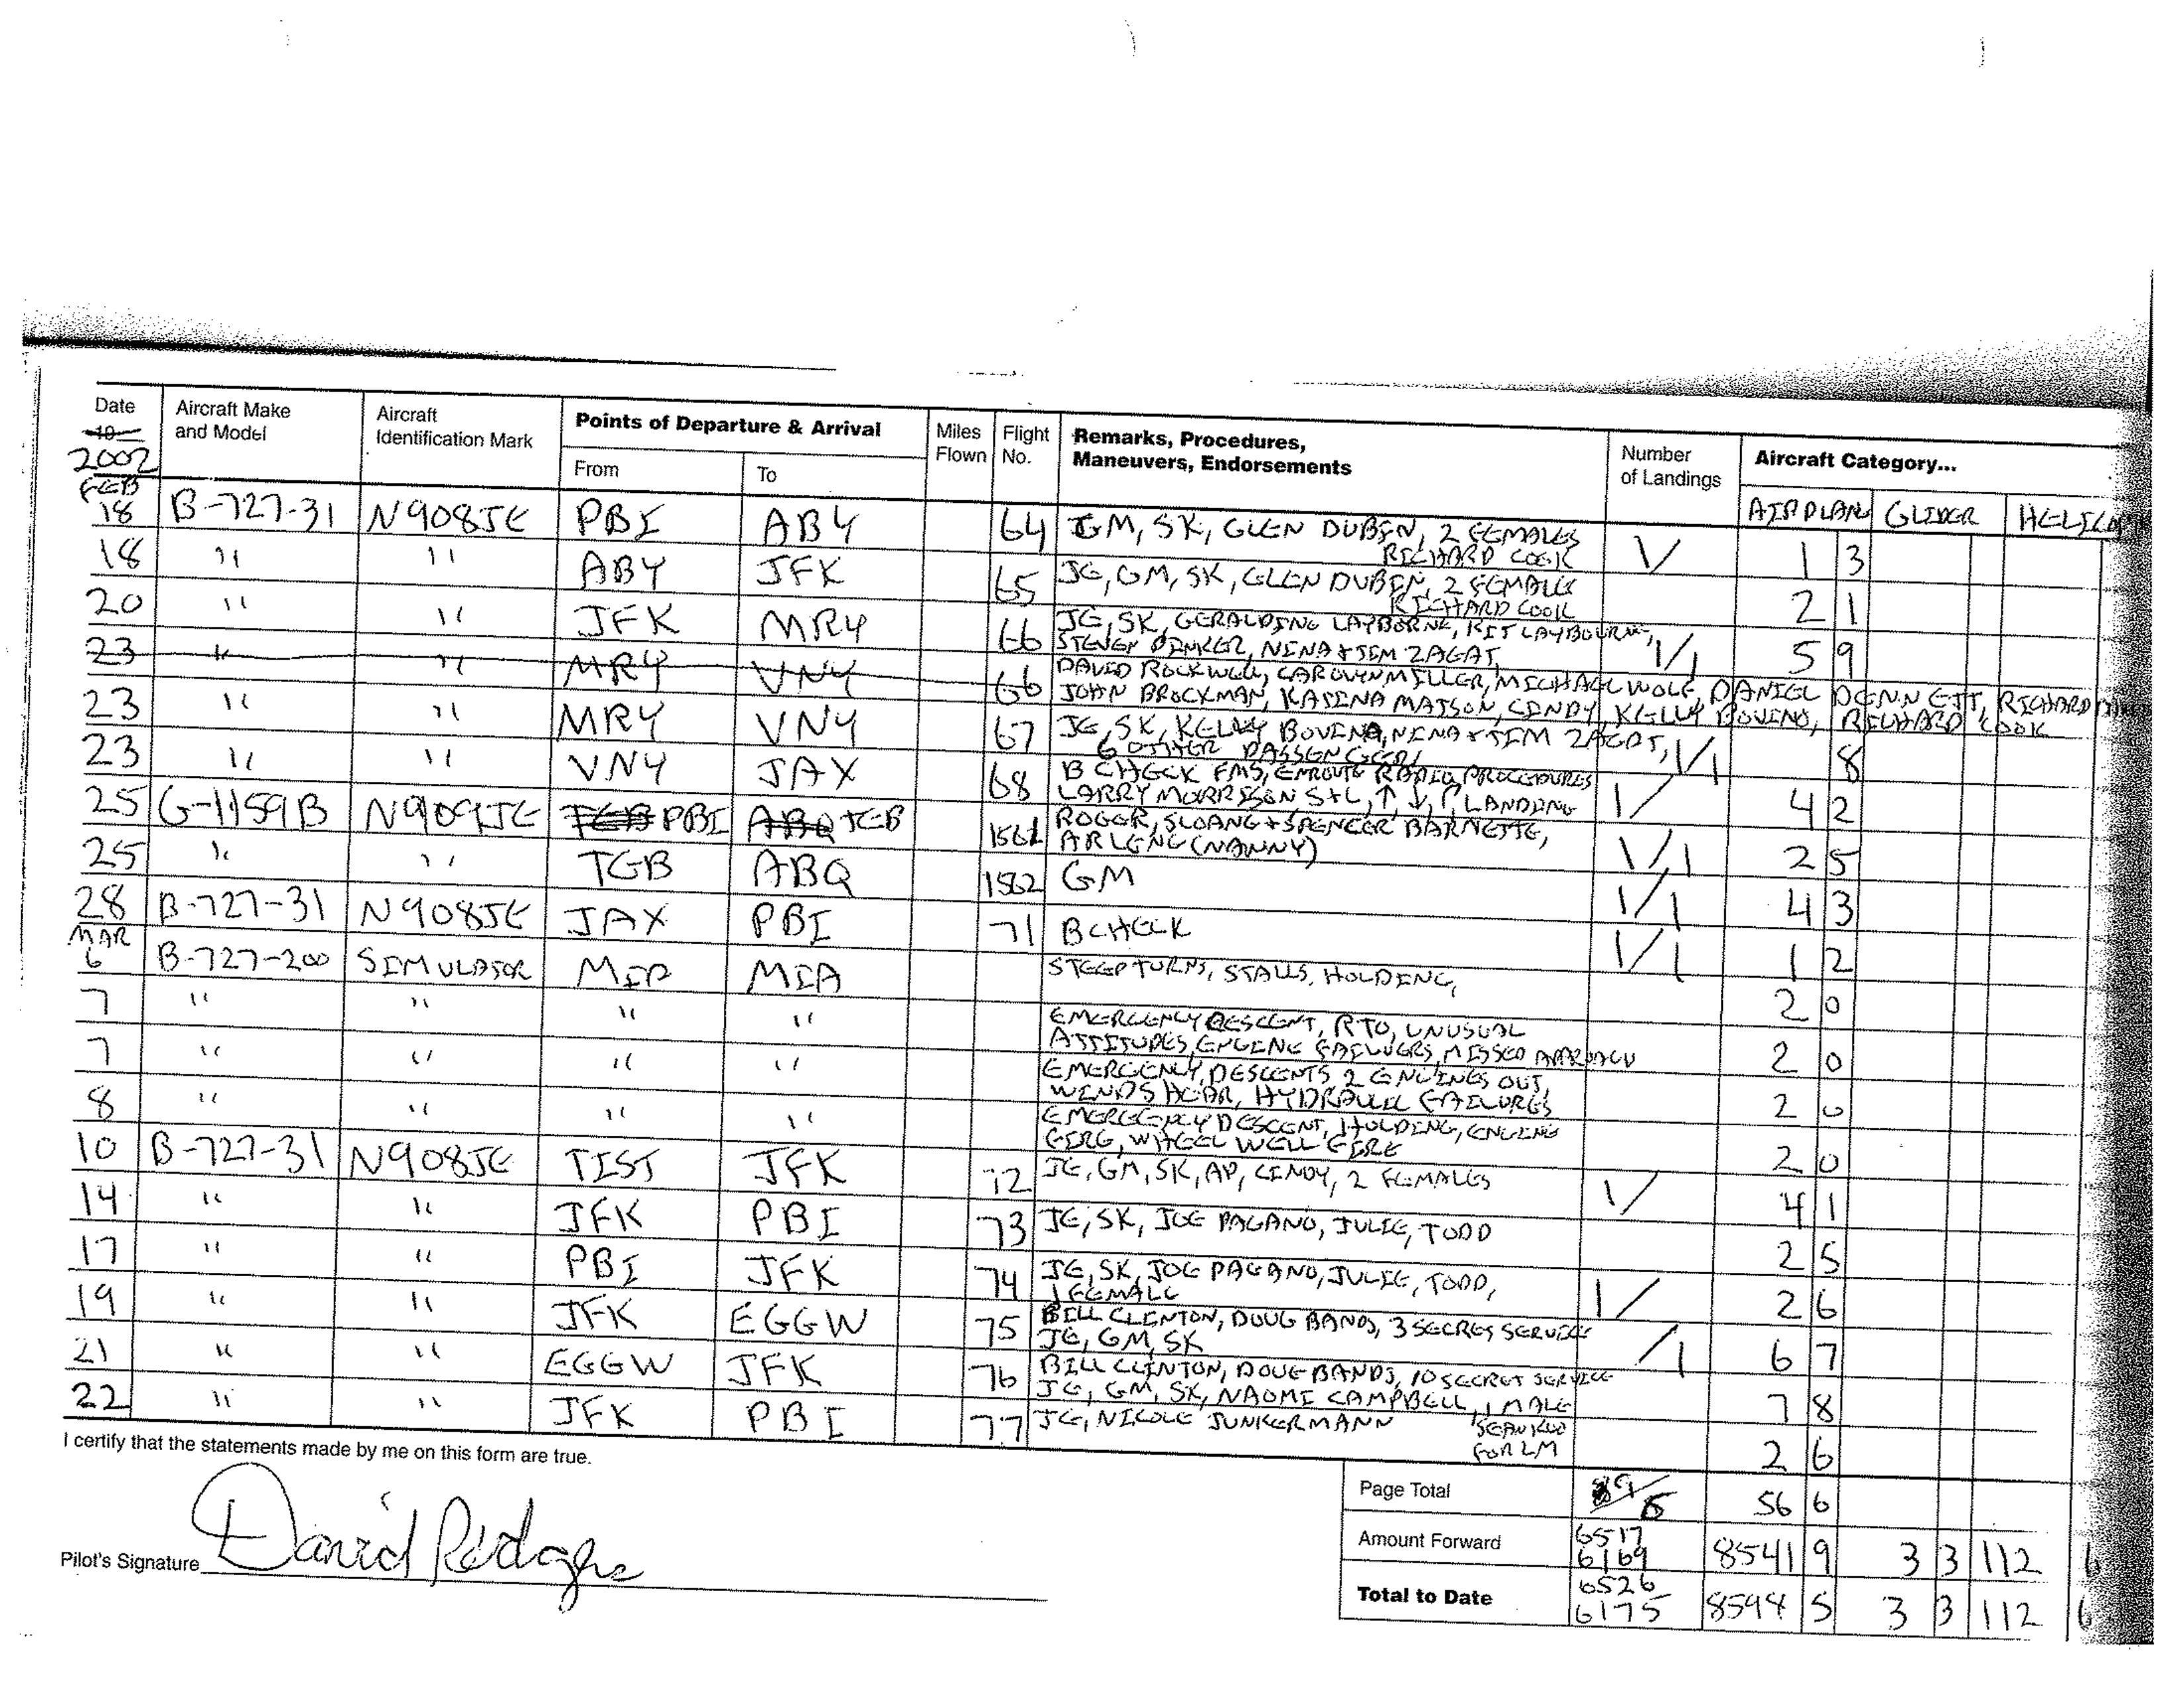 Date Aircraft Make Aircraft Points of Departure & Arrival Miles Flight Remarks, Procedures, Number Aircraft Category...
19 and Model Identification Mark From To Flown No. Maneuvers, Endorsements of Landings
2002 AIRPLAN GLIDER
FEB
18 B-727-31 N908JE PBI ABY 64 JGM, SK, GLEN DUBIN, 2 FEMALES 1/ 1 3
RICHARD COOK
18 " " ABY JFK 65 JE, GM, SK, GLEN DUBIN, 2 FEMALES 2 1
RICHARD COOK
20 " " JFK MRY 66 JE, SK, GERALDINE LAYBORNE, KIT LAYBOURNE, 1/1 5 9
STEVEN PINKER, NINA + TIM ZAGAT,
23 " " MRY VNY 66 DAVID ROCKWELL, CAROLYN MILLER, MICHAEL WOLF, DANIEL DENNETT, RICHARD
JOHN BROCKMAN, KATINA MATSON, CINDY, KELLY BOVINO, RICHARD COOK
23 " " MRY VNY 67 JE, SK, KELLY BOVINO, NINA + TIM ZAGAT, 1/1 8
6 OTHER PASSENGERS
23 " " VNY JAX 68 B CHECK FMS, ENROUTE RADIO PROCEDURES 1/ 4 2
LARRY MORRISON S+L, ↑, ↓, LANDING
25 G-1159B N909JE PBI TEB 1561 ROGER, SLOANE + SPENCER BARNETTE, 1/1 2 5
ARLENE (NANNY)
25 " " TEB ABQ 1562 GM 1/1 4 3
28 B-727-31 N908JE JAX PBI 71 B CHECK 1/1 1 2
MAR
6 B-727-200 SIMULATOR MIA MIA STEEP TURNS, STALLS, HOLDING, 2 0
7 " " " " EMERGENCY DESCENT, RTO, UNUSUAL 2 0
ATTITUDES, ENGINE FAILUERS, MISSED APPROACH
7 " " " " EMERGENCY, DESCENTS 2 ENGINES OUT, 2 0
WINDSHEAR, HYDRAULIC FAILURES
8 " " " " EMERGENCY DESCENT, HOLDING, ENGINE 2 0
FIRE, WHEEL WELL FIRE
10 B-727-31 N908JE TIST JFK 72 JE, GM, SK, AP, CINDY, 2 FEMALES 1/ 4 1
14 " " JFK PBI 73 JE, SK, JOE PAGANO, JULIE, TODD 2 5
17 " " PBI JFK 74 JE, SK, JOE PAGANO, JULIE, TODD, 1/ 2 6
1 FEMALE
19 " " JFK EGGW 75 BILL CLINTON, DOUG BANDS, 3 SECRET SERVICE /1 6 7
JE, GM, SK
21 " " EGGW JFK 76 BILL CLINTON, DOUG BANDS, 10 SECRET SERVICE 7 8
JE, GM, SK, NAOMI CAMPBELL, 1 MALE
22 " " JFK PBI 77 JE, NICOLE JUNKERMANN 2 6
FOR LM
I certify that the statements made by me on this form are true.
Page Total 56 6
Amount Forward 6517 6169 8541 9 3 3 112
Total to Date 6526 6175 8598 5 3 3 112 6
Pilot's Signature David Rodgers